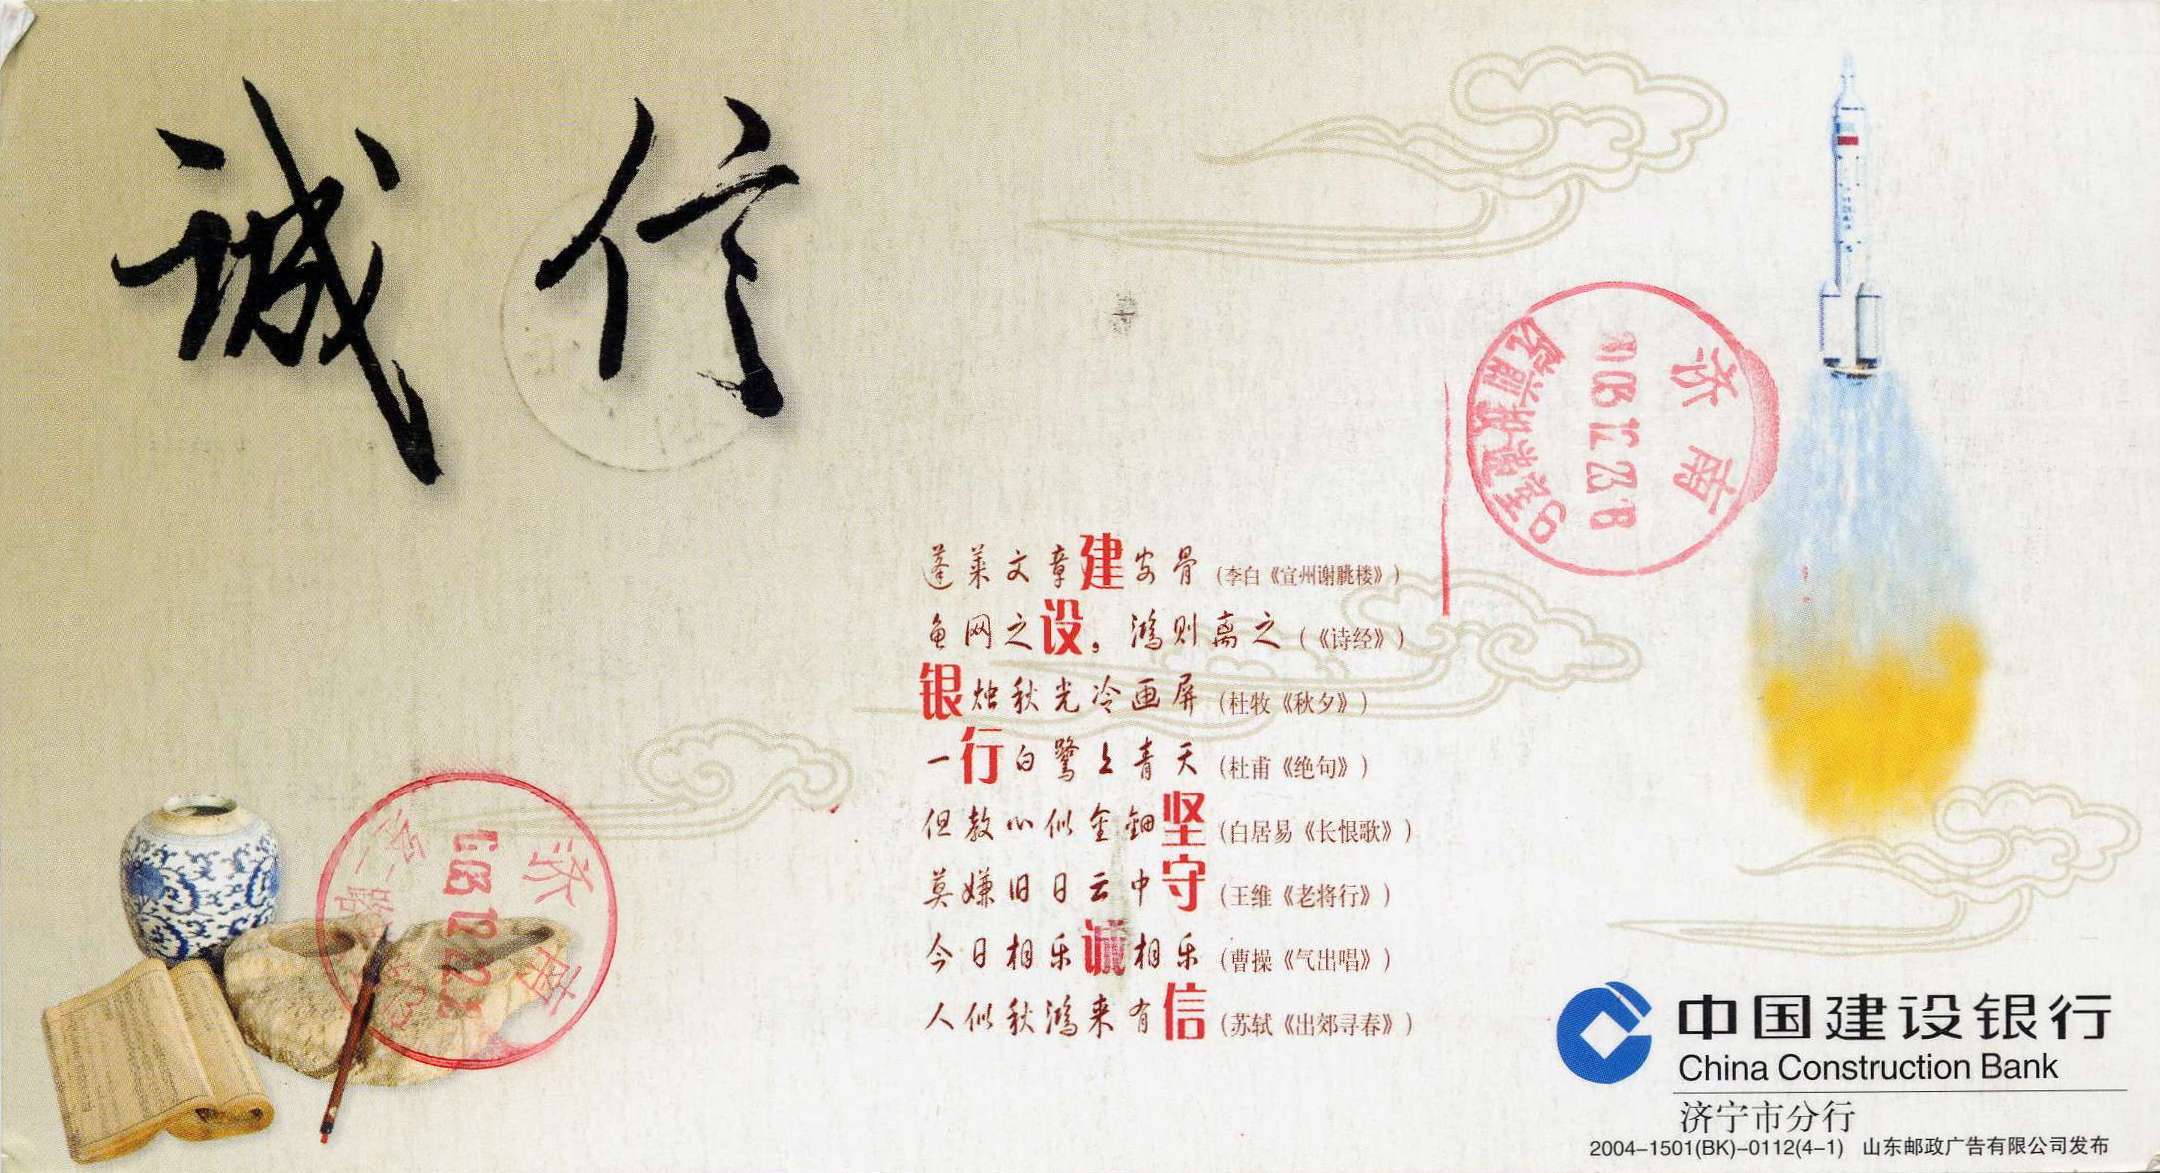 诚信
蓬莱文章建安骨（李白《宣州谢眺楼》）
鱼网之设，鸿则离之（《诗经》）
银烛秋光冷画屏（杜牧《秋夕》）
一行白鹭上青天（杜甫《绝句》）
但教心似金钿坚（白居易《长恨歌》）
莫嫌旧日云中守（王维《老将行》）
今日相乐诚相乐（曹操《气出唱》）
人似秋鸿来有信（苏轼《出郊寻春》）
济南
2003.12.23.18
济南
2003.12.22
中国建设银行
China Construction Bank
济宁市分行
2004-1501(BK)-0112(4-1) 山东邮政广告有限公司发布